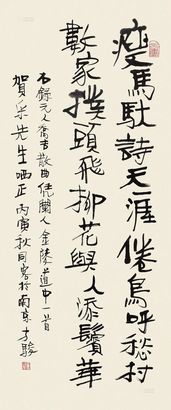 瘦馬馱詩天涯倦鳥呼愁村
數家撲頭飛柳花與人添鬢華
右錄元人喬吉散曲凭闌人金陵道中一首
賀采先生哂正丙寅秋同客於南京